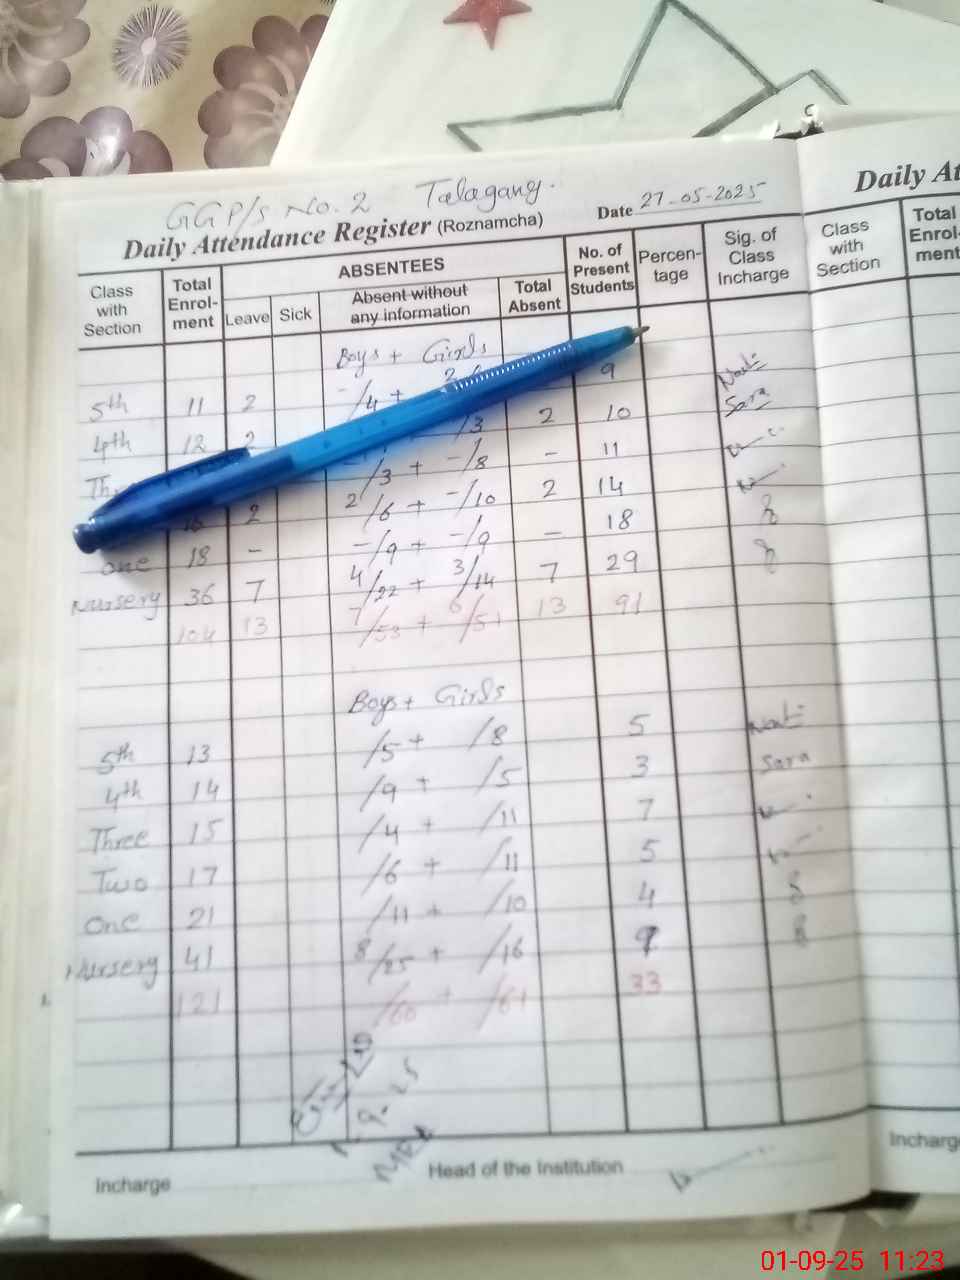 GGP/S No. 2 Talagang.
Daily Attendance Register (Roznamcha) Date 27-05-2025
Class with Section
Total Enrol-ment
ABSENTEES
Leave
Sick
Absent without any information
Total Absent
No. of Present Students
Percen-tage
Sig. of Class Incharge
Boys + Girls
5th 11 2 -/4 + 2/ 9
4th 12 2 /3 2 10 Sara
-/3 + -/8 - 11
2 2/6 + -/10 2 14
one 18 - -/9 + -/9 - 18
Nursery 36 7 4/22 + 3/14 7 29
104 13 7/53 + 6/51 13 91
Boys + Girls
5th 13 /5 + /8 5
4th 14 /9 + /5 3 Sara
Three 15 /4 + /11 7
Two 17 /6 + /11 5
One 21 /11 + /10 4
Nursery 41 8/25 + /16 9
121 /60 + /61 33
Incharge
Head of the Institution
Daily At
Class with Section
Total Enrol-ment
Incharg
01-09-25 11:23